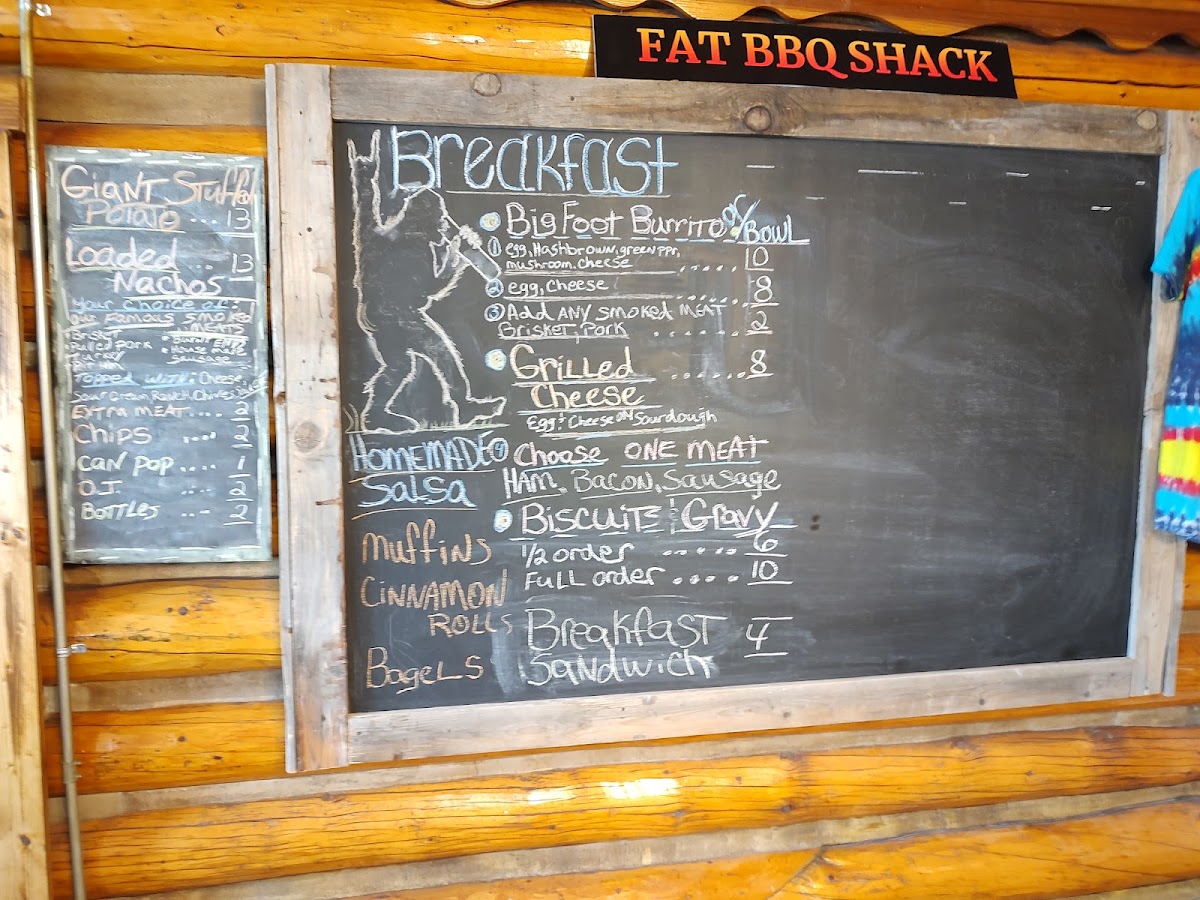 FAT BBQ SHACK
Giant Stuffed
Potato ... 13
Loaded
Nachos .. 13
Your choice of:
our Famous smoked
MEATS
• Brisket
• Pulled Pork
Turkey
• Burnt Ends
• House made
Sausage
Topped with: Cheese,
Sour Cream, Ranch, Chives,
Extra meat.... 2
Chips .... 2
Can pop .... 1
O.J. .... 2
Bottles ... 2
Breakfast
BigFoot Burrito or/Bowl
① egg, Hashbrown, green ppr,
mushroom, cheese ..... 10
② egg, cheese ...... 8
③ Add ANY smoked MEAT
Brisket, Pork ....... 2
Grilled ...... 8
Cheese
Egg + Cheese on Sourdough
Choose ONE MEAT
HAM, Bacon, Sausage
Biscuits & Gravy
1/2 order ..... 6
Full order .... 10
Breakfast 4
Sandwich
Homemade
Salsa
Muffins
Cinnamon
Rolls
Bagels